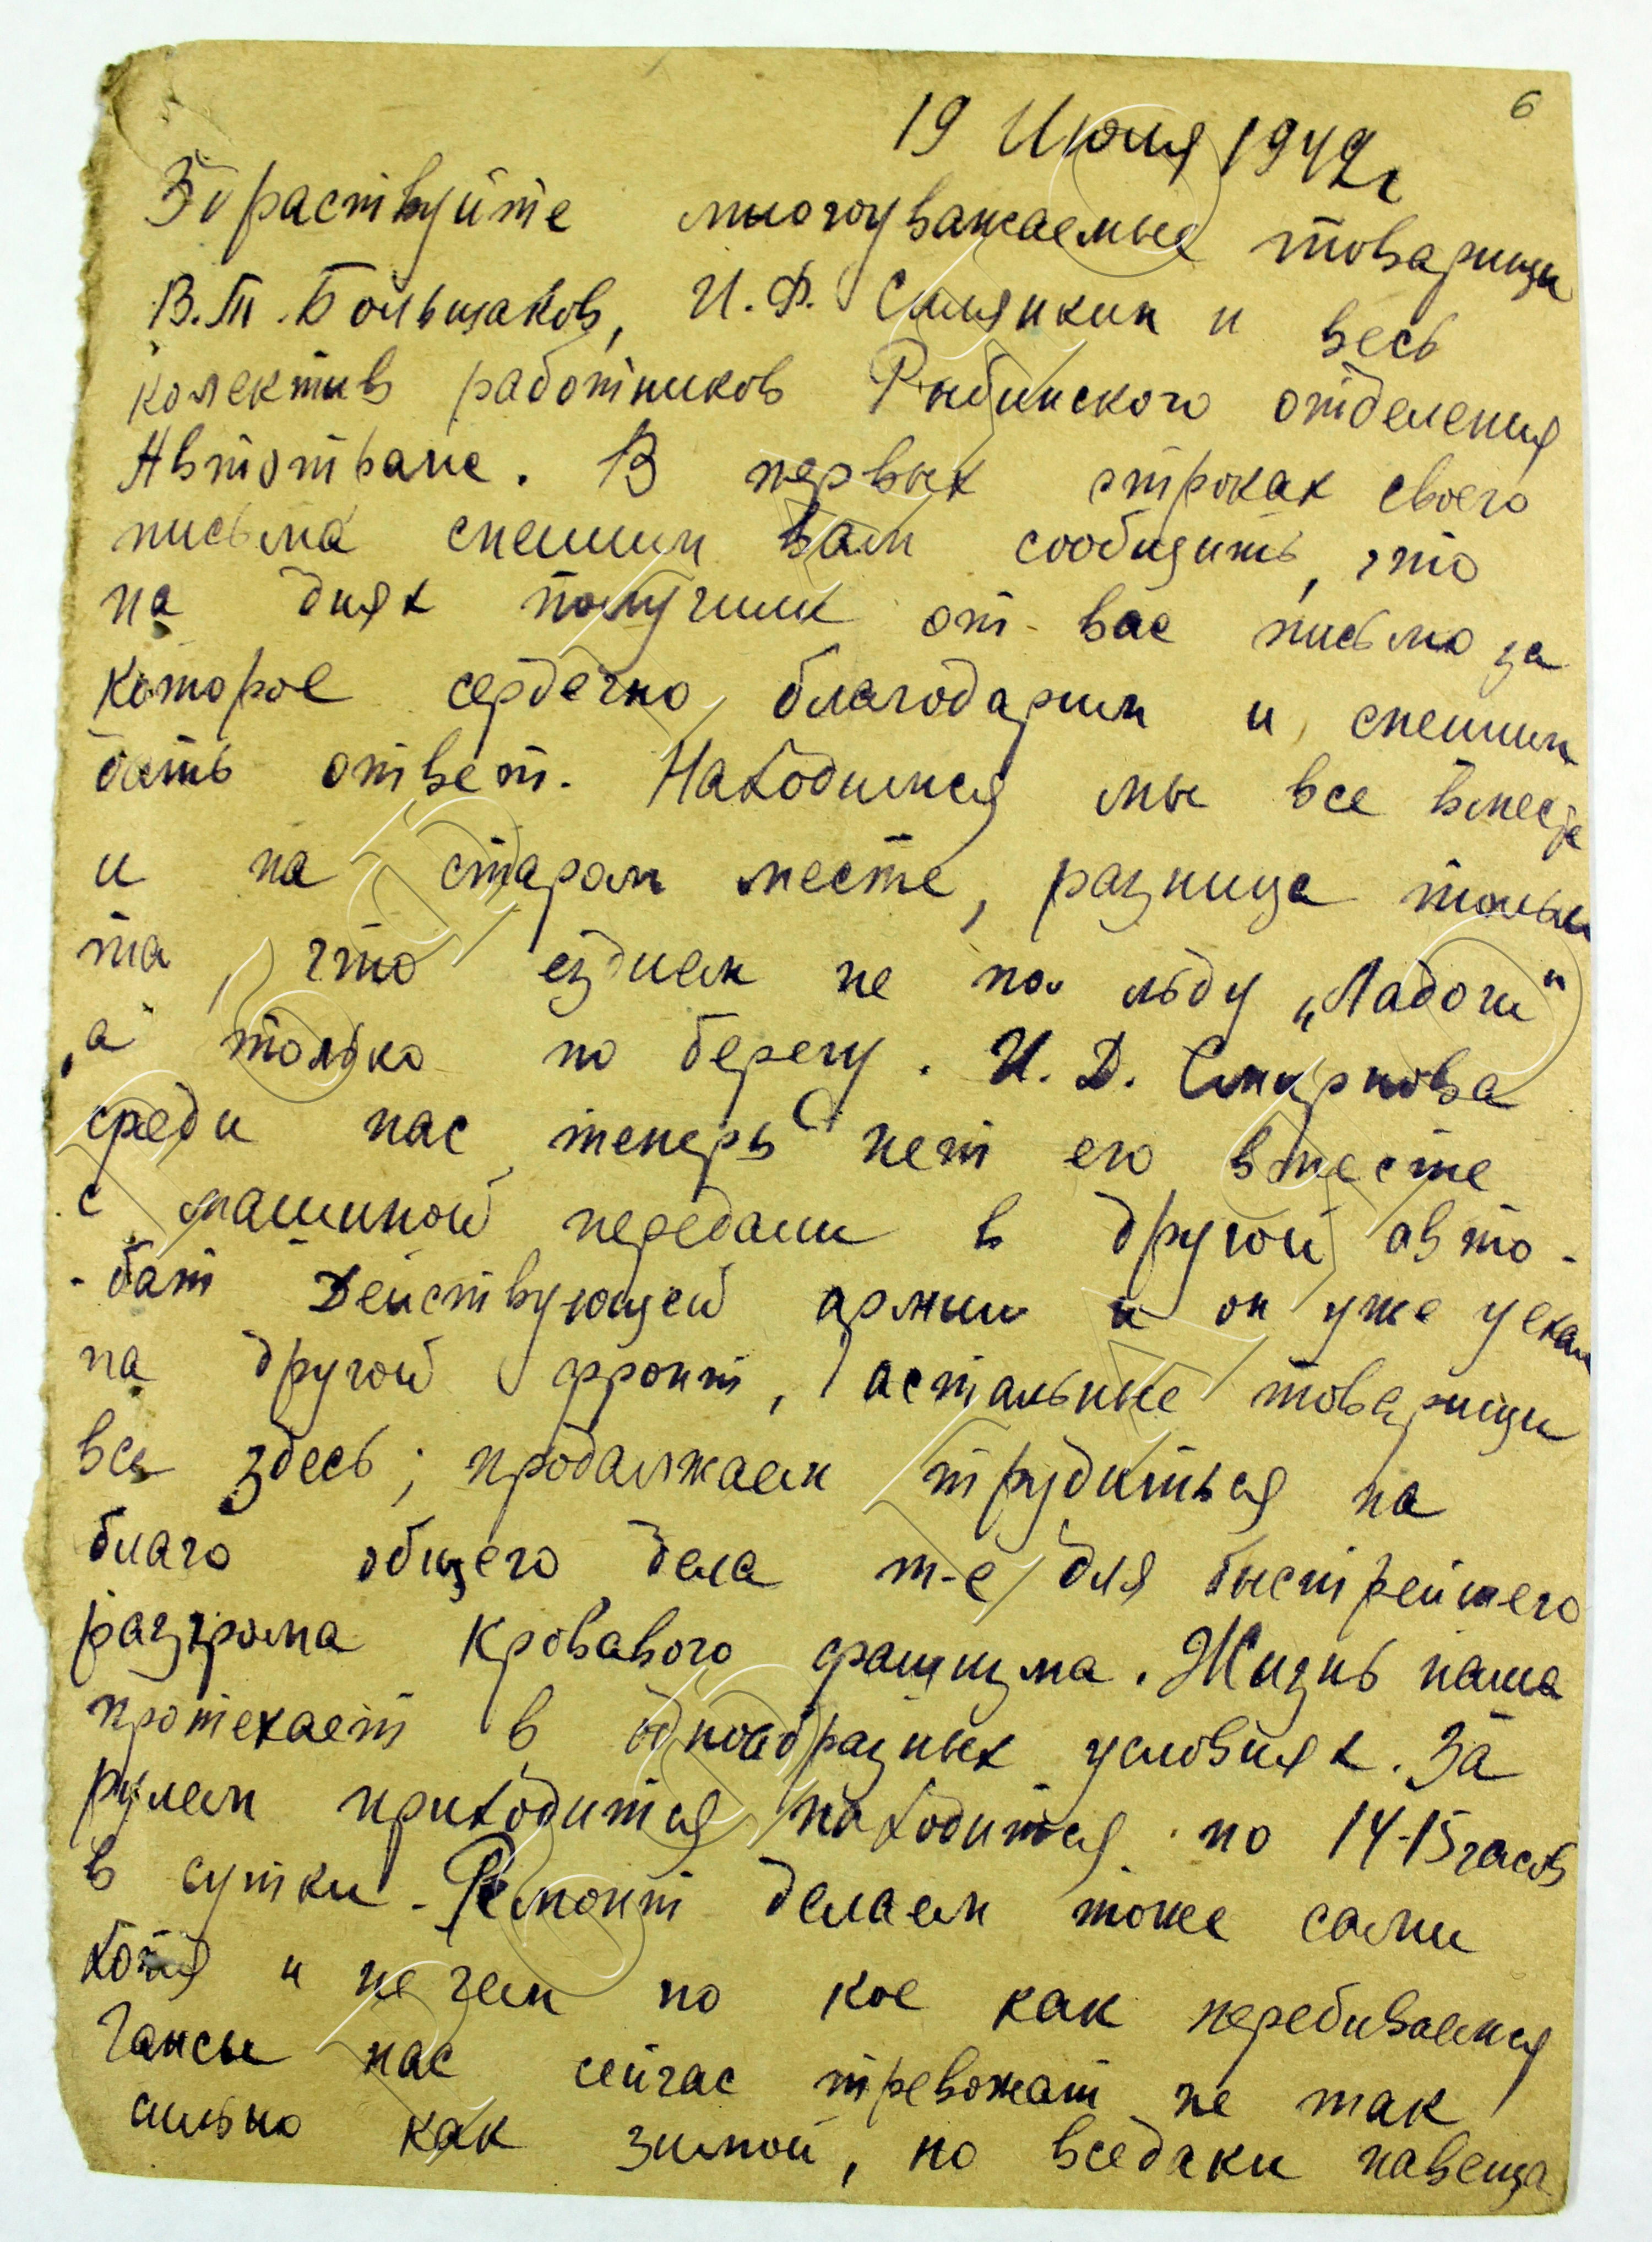 6
19 Июля 1942г
Здраствуйте многоуважаемые товарищи
В.Т. Большаков, И.Ф. Силянкин и весь
колектив работников Рыбинского отделения
Автотранс. В первых строках своего
письма спешим вам сообщить, что
на днях получили от вас письмо за
которое сердечно благодарим и спешим
дать ответ. Находимся мы все вместе
и на старом месте, разница только
та, что ездием не по льду „Ладоги"
а только по берегу. И.Д. Смирнова
среди нас теперь нет его вместе
с машиной передали в другой авто-
-бат Действующей армии и он уже уехал
на другой фронт, астальные товарищи
все здесь; продалжаем трудиться на
благо общего дела т-е для быстрейшего
разгрома кровавого фашизма. Жизнь наша
протекает в однообразных условиях. За
рулем приходится находится по 14-15 часов
в сутки. Ремонт делаем тоже сами
хотя и не чем но кое как перебиваемся
Гансы нас сейчас тревожат не так
сильно как зимой, но вседаки навеща